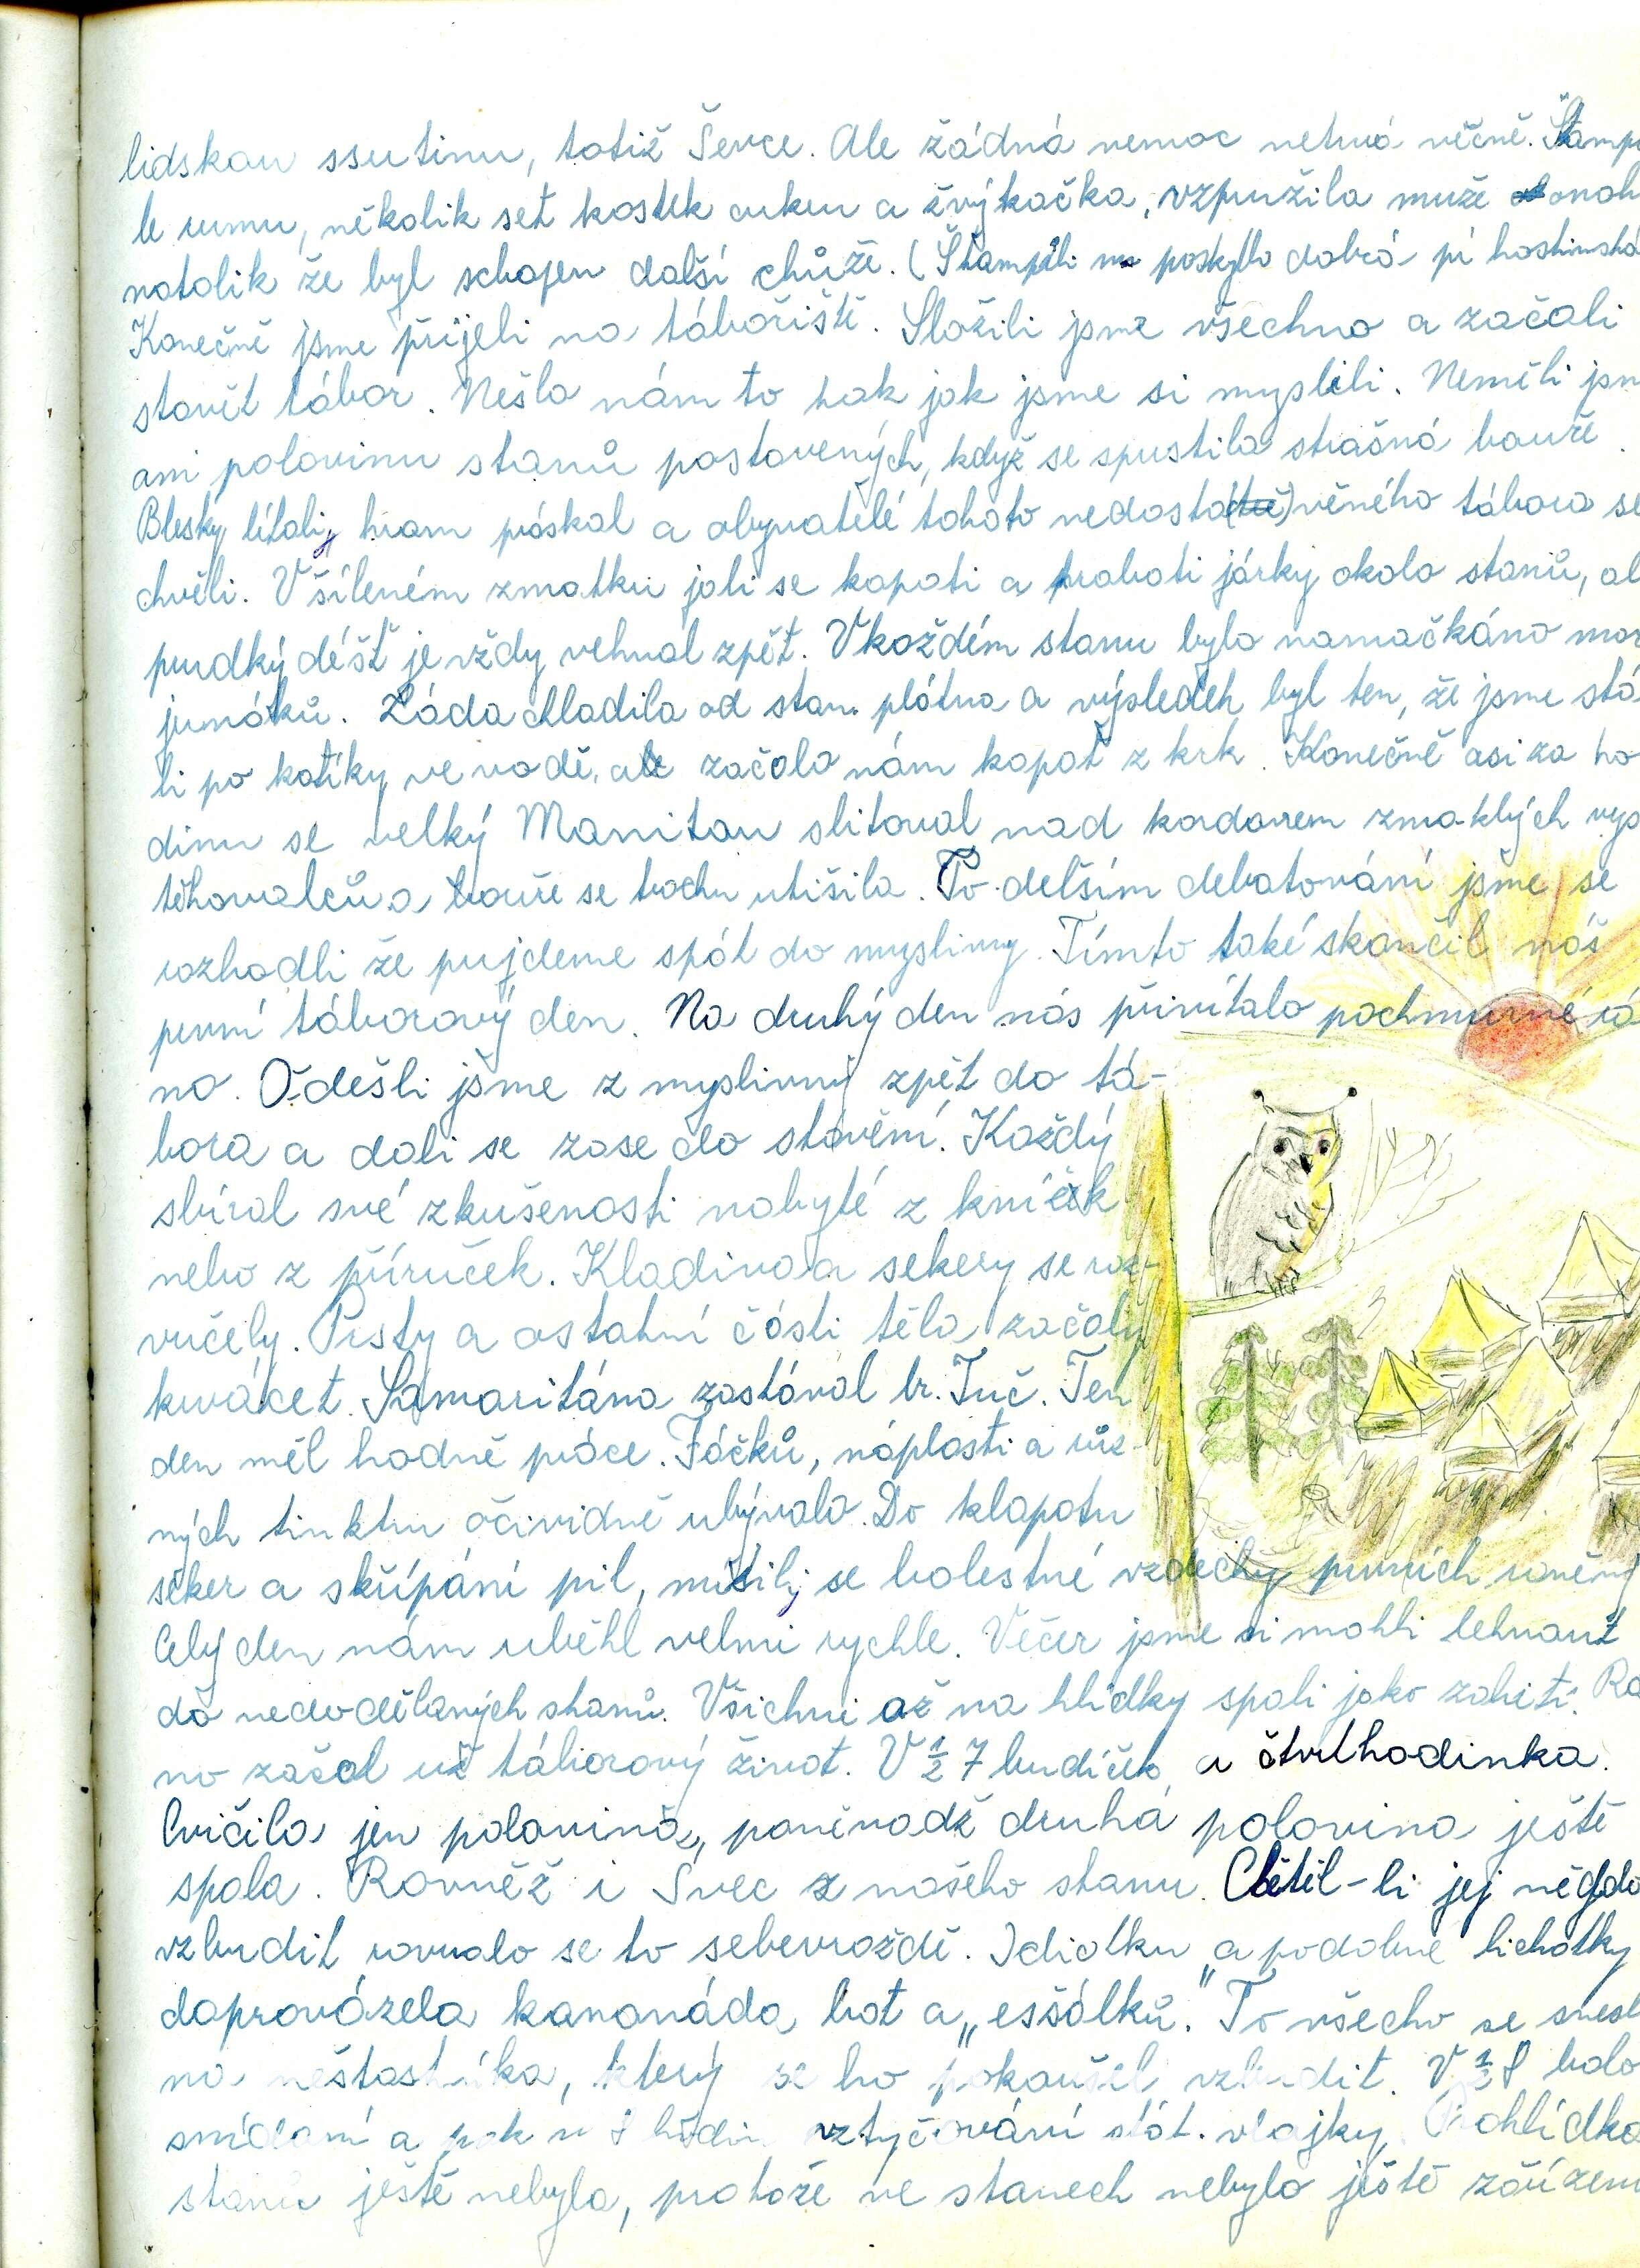 lidskou ssutinu, totiž Ševce. Ale žádná nemoc netrvá věčně. Štamp
le rumu, několik set kostek cukru a žvýkačka, vzpružila muže onoh
natolik že byl schopen další chůze. (Štampěli mu poskytlo dobrá pí hostinská
Konečně jsme přijeli na tábořiště. Složili jsme všechno a začali
stavět tábor. Nešlo nám to tak jak jsme si myslili. Neměli jsm
ani polovinu stanů postavených, když se spustila strašná bouře.
Blesky lítaly, hrom práskal a obyvatelé tohoto nedosta(teč)věného tábora se
chvěli. V šíleném zmatku jali se kopati a hrabati járky okolo stanů, al
prudký déšť je vždy vehnal zpět. V každém stanu bylo namačkáno mor
junáků. Záda chladila od stan. plátna a výsledek byl ten, že jsme stá
li po kotíky ve vodě, ale začalo nám kapat z krk. Konečně asi za ho
dinu se velký Manitou slitoval nad kordonem zmoklých vys
těhovalců a bouře se trochu utišila. Po delším debatování jsme se
rozhodli že pujdeme spát do myslivny. Tímto také skončil náš
první táborový den. Na druhý den nás přivítalo pochmurné rá
no. Odešli jsme z myslivny zpět do tá-
bora a dali se zase do stavění. Každý
sbíral své zkušenosti nabyté z knížek
nebo z příruček. Kladiva a sekery se roz-
vrčely. Prsty a ostatní části těla začaly
krvácet. Samaritána zastával br. Tuč. Ten
den měl hodně práce. Fáčků, náplasti a růz-
ných tinktur očividně ubývalo. Do klapotu
seker a skřípání pil, mísily se bolestné vzdechy prvních raněný
Celý den nám uběhl velmi rychle. Večer jsme si mohli lehnout
do nedodělaných stanů. Všichni až na hlídky spali jako zabití. Rá
no začal už táborový život. V ½ 7 budíček a čtvrthodinka.
Cvičila jen polovina, poněvadž druhá polovina ještě
spala. Rovněž i Švec z našeho stanu. Chtěl-li jej někdo
vzbudit rovnalo se to sebevraždě. Idiotku „a podobné lichotky
doprovázela kanonáda bot a „eššálků." To všecho se snesl
na nešťastníka, který se ho pokoušel vzbudit. V ½ 8 bylo
snídaní a pak v 8 hodin vztyčování stát. vlajky. Prohlídka
stanů ještě nebyla, protože ve stanech nebylo ještě zařízení